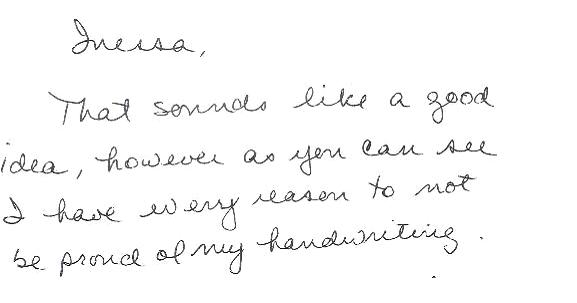 Inessa,
That sounds like a good
idea, however as you can see
I have every reason to not
be proud of my handwriting.